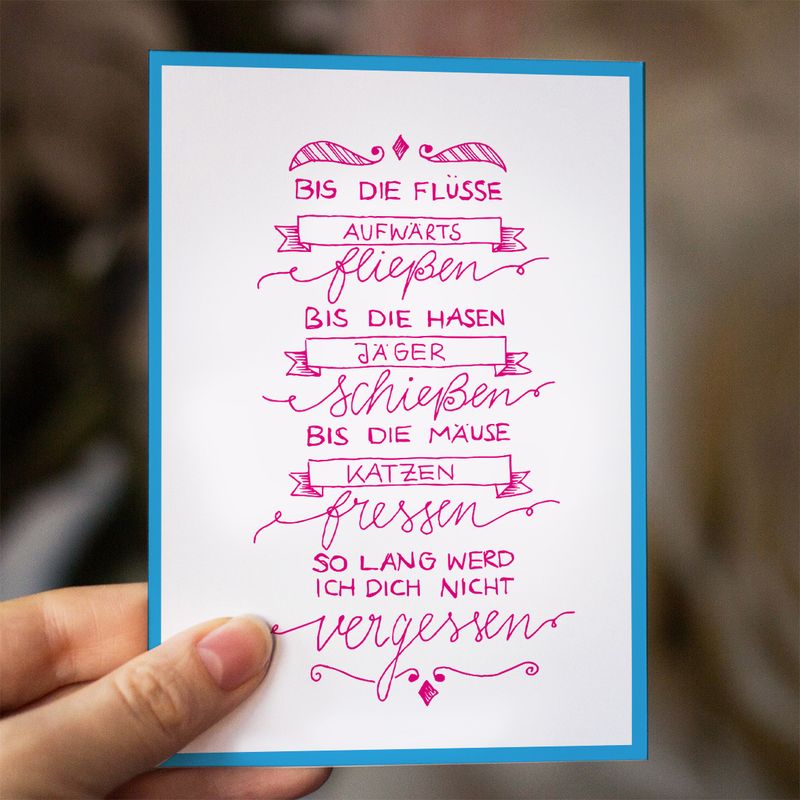 BIS DIE FLÜSSE
AUFWÄRTS
fließen
BIS DIE HASEN
JÄGER
schießen
BIS DIE MÄUSE
KATZEN
fressen
SO LANG WERD
ICH DICH NICHT
vergessen